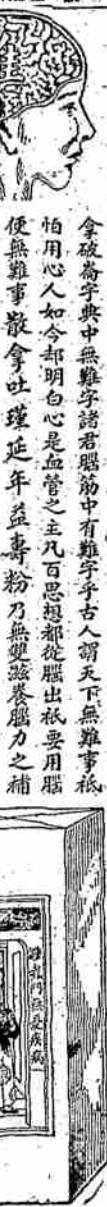 拿破崙字典中無難字諸君腦筋中有難字乎古人謂天下無難事祇
怕用心人如今却明白心是血管之主凡百思想都從腦出祇要用腦
便無難事散拿吐瑾延年益壽粉乃無雙滋養腦力之補